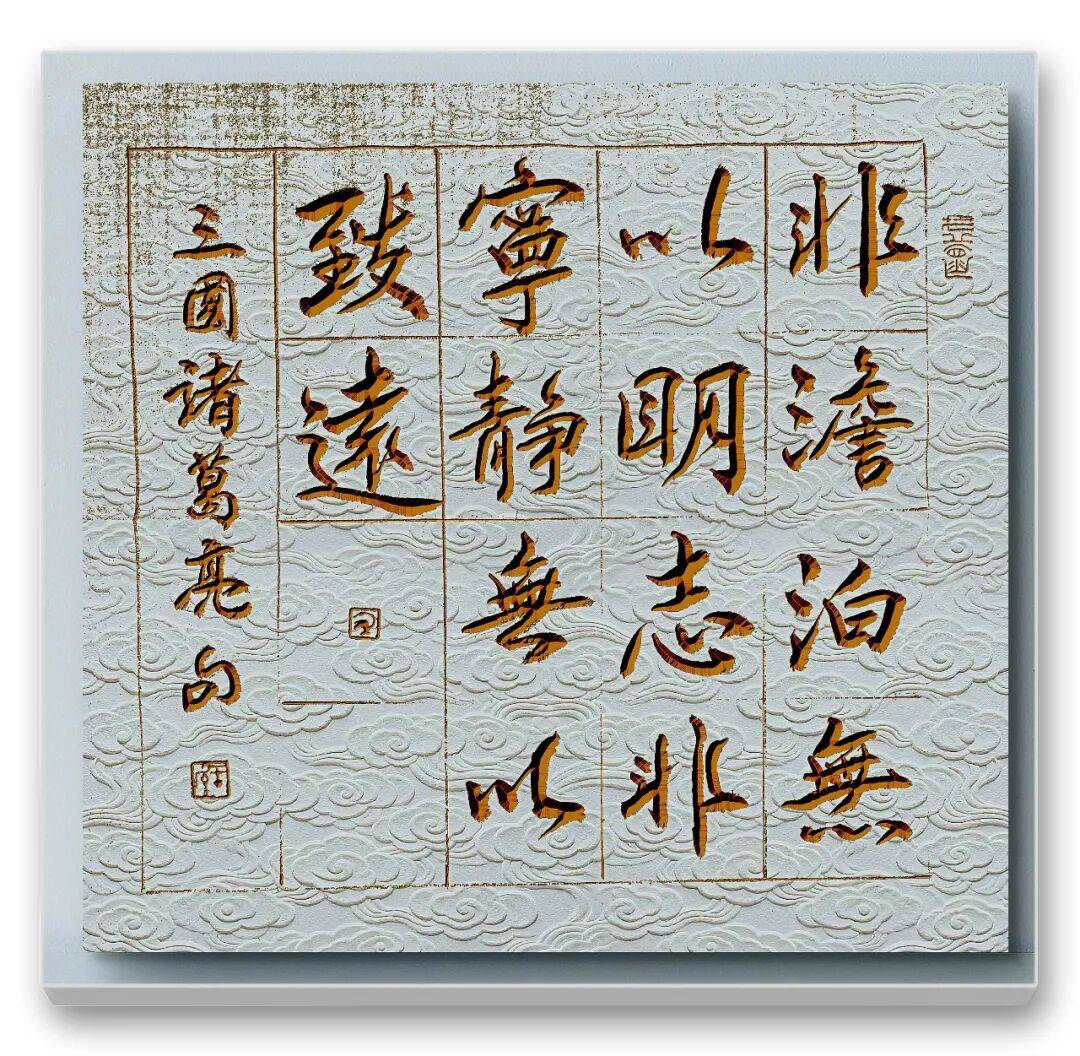 非澹泊無
以明志非
寧靜無以
致遠
三國諸葛亮句